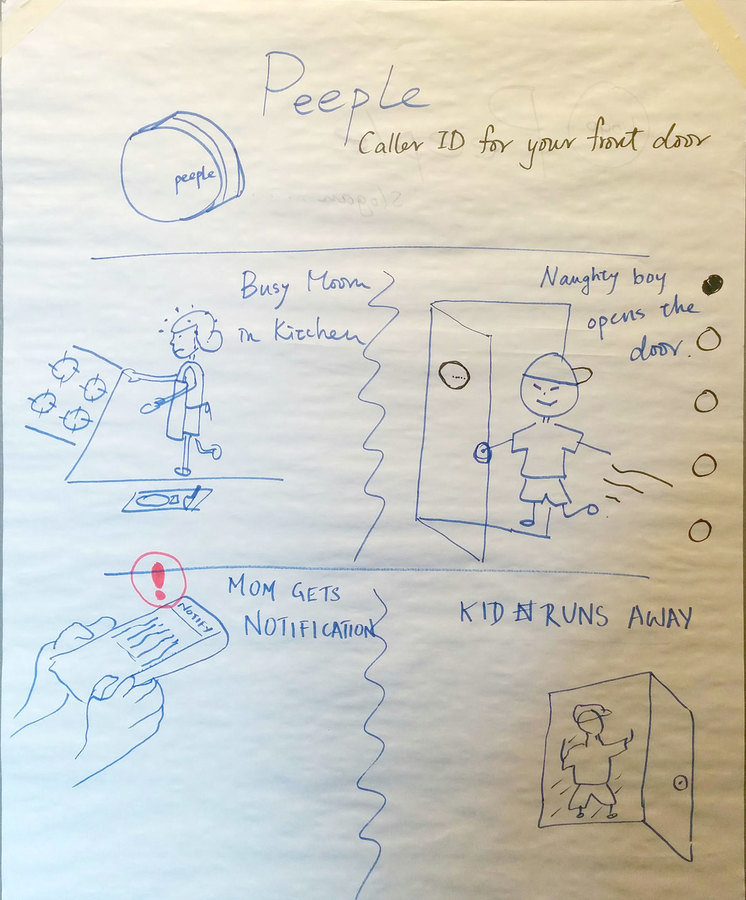 Peeple
Caller ID for your front door
peeple
slogan......
Busy Moom
in Kitchen
Naughty boy
opens the
door.
!
MOM GETS
NOTIFICATION
NOTIFY
KID RUNS AWAY